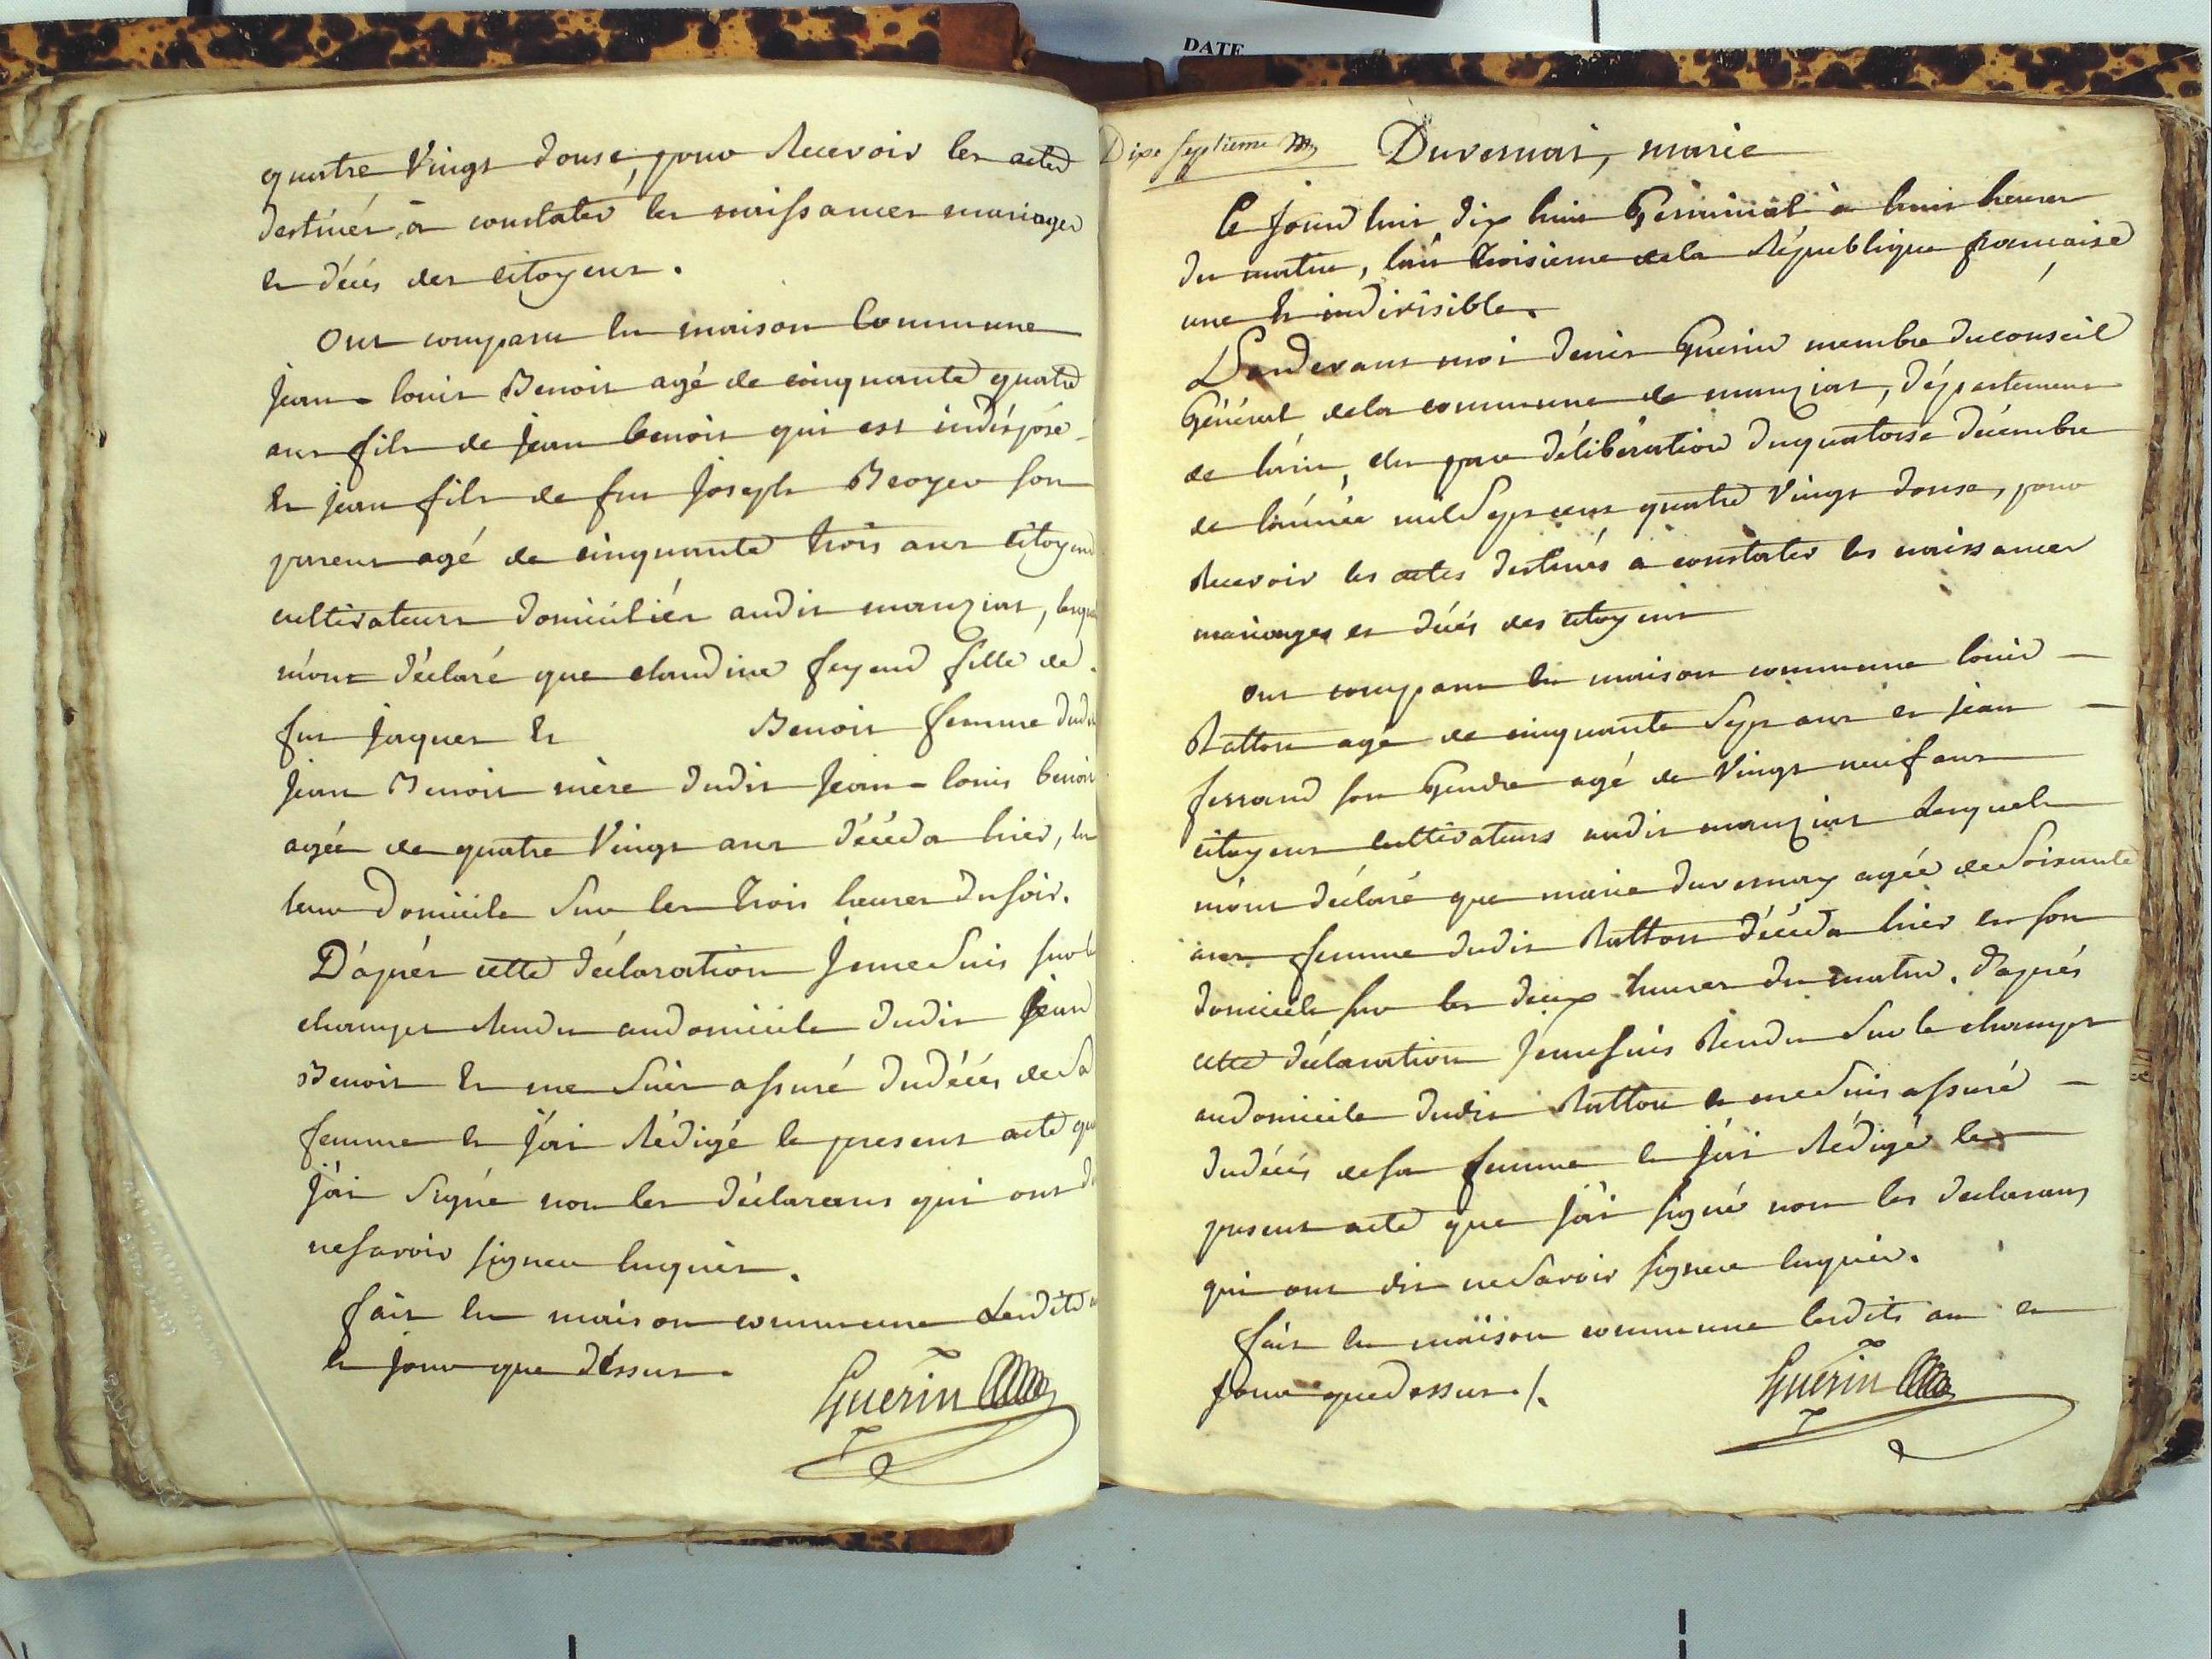 DATE
quatre Vingt douse, pour Recevoir les actes
destinés, à constater les naissances mariages
et décés des citoyens.
Ont comparu en maison Commune
jean-louis Benoit agé de cinquante quatre
ans fils de jean benoit qui est indisposé
et jean fils de feu joseph Broyer son
parent agé de cinquante trois ans citoyens
cultivateurs domiciliés audit manziat, lesquels
m'ont déclaré que claudine feyend fille de
feu jaques et Benoit femme dudit
jean Benoit mère dudit jean-louis benoit
agée de quatre Vingt ans décéda hier, en
leur domicile Sur les trois heures du soir.
D'aprés cette déclaration je me Suis sur le
champt Rendu au domicile dudit jean
Benoit et me Suis assuré du décés de Sa
femme et j'ai Rédigé le present acte que
j'ai Signé non les déclarans qui ont dit
ne savoir signer enquis.
fait en maison commune Lesdits
et jour que déssus.
Guerin
Dixe septieme Duvernai, marie
Ce jourd huit dix huit Germinal à huit heures
du matin, l'an troisieme de la République francaise
une et indivisible.
Pardevant moi denis Guerin membre du conseil
Général de la commune de manziat, département
de l'ain, élu par délibération du quatorse décembre
de l'année mil Sept cent quatre Vingt douse, pour
Recevoir les actes destinés a constater les naissances
mariages et décés des citoyens
ont comparu en maison commune louis
Ratton agé de cinquante Sept ans et jean
ferrand son Gendre agé de Vingt neuf ans
citoyens cultivateurs audit manziat Lesquels
m'ont déclaré que marie duvernay agée de Soixante
ans femme dudit Ratton décéda hier en son
domicile sur les deux heures du matin. d'aprés
cette déclaration je me suis Rendu Sur le champt
au domicile dudit Ratton et me Suis assuré
du décés de sa femme et j'ai Rédigé le
present acte que j'ai signé non les declarans
qui ont dit ne Savoir signer enquis.
fait en maison commune lesdits an et
jour que dessus./.
Guerin